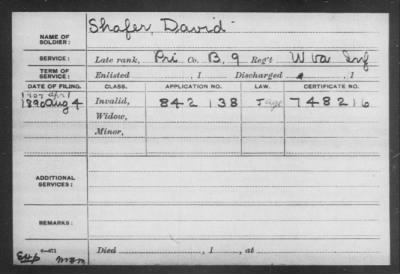 NAME OF SOLDIER: Shafer, David
SERVICE: Late rank, Pri Co. B, 9 Reg't W Va Inf
TERM OF SERVICE: Enlisted , 1 Discharged , 1
DATE OF FILING. CLASS. APPLICATION NO. LAW. CERTIFICATE NO.
1907 Apl
1890 Aug 4 Invalid, 842 138 J 748216
Widow,
Minor,
ADDITIONAL SERVICES:
REMARKS:
Died , 1 , at